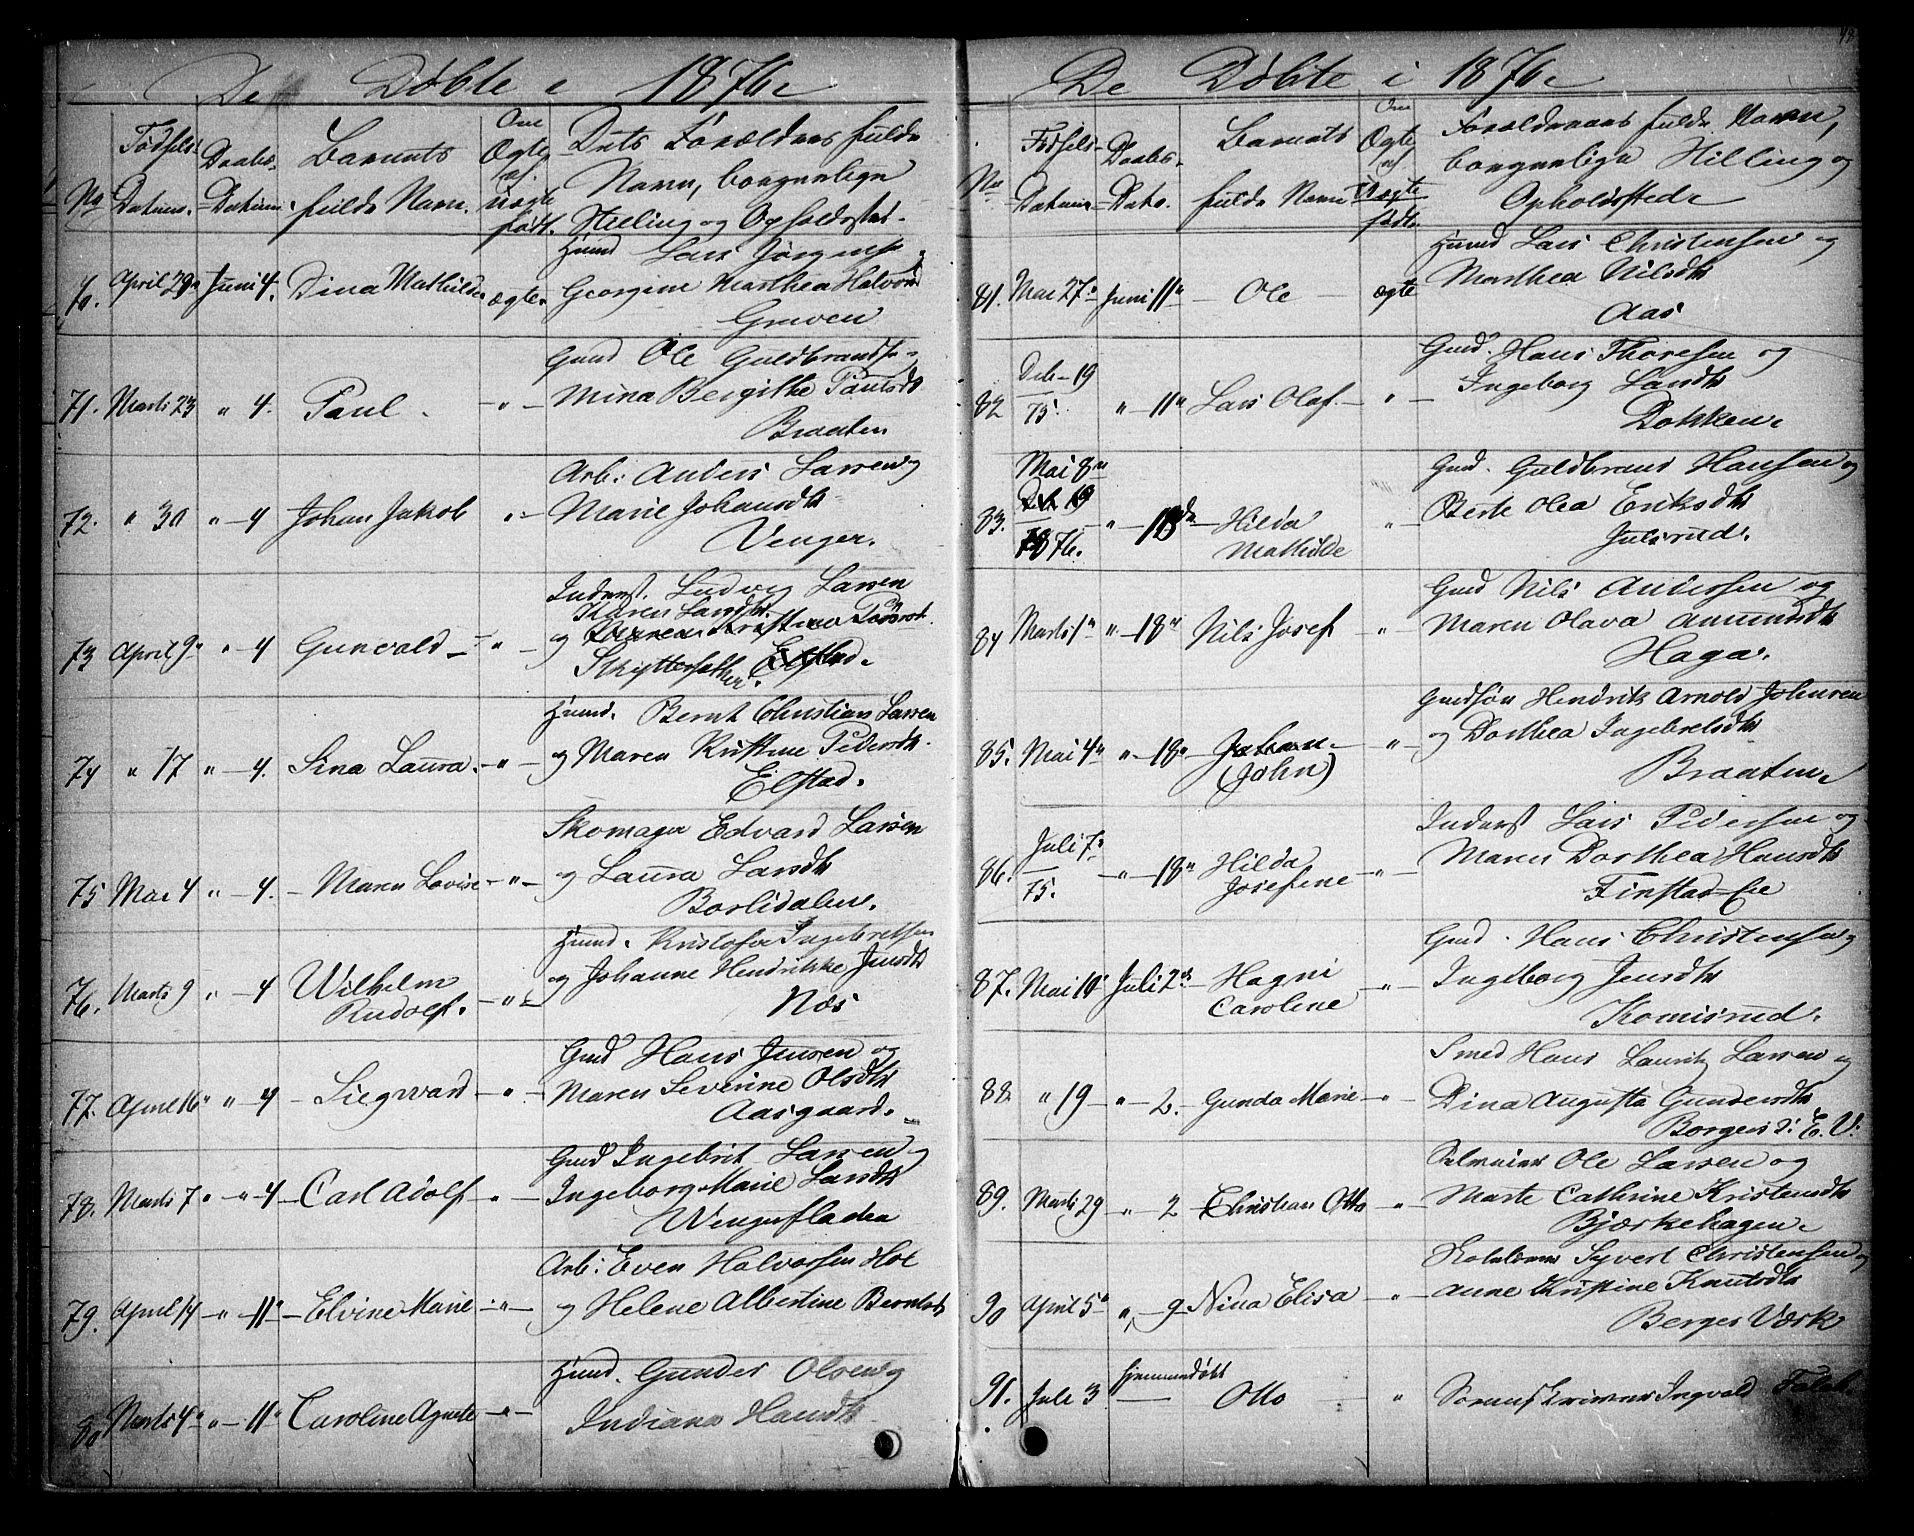 De Døbte i 1876
No
Fødsels Datum.
Daabs-Datum.
Barnets fulde Navn.
Om Ægte el. uægte født.
Dets Forældres fulde
Navn, borgerlige
Stilling og Opholdsted.
70. April 29 Juni 4. Dina Mathilde ægte.
Huusmd Lars Jørgens. og
Georgine Marthea Halvorsd
Gruven
71. Marts 23 " 4. Paul. - " -
Gmd Ole Guldbrands. og
Mina Bergithe Paulsdt
Braaten
72. " 30 " - 4 Johan Jakob " -
Arb: Anders Larsen og
Marie Johansdt
Venger.
73 April 9 " - 4 Gunvald - " -
Inderst. Ludvig Larsen
Karen Larsdt.
og
Skytterfalther.
74 " 17 " - 4. Sina Laura. - " -
Huusmd. Bernt Christian Larsen
og Maren Kristine Pedersdt.
Elstad.
75 Mai 4 " - 4. - Maren Lovise - " -
Skomager Edvard Larsen
og Laura Larsdt
Borlidalen.
76. Marts 9 " - 4 Wilhelm
Rudolf. - " -
Huusmd. Kristofer Ingebretsen
og Johanne Hendrikke Jensdt
Næs
77. April 16 " " - 4 - Siegward - " -
Gmd Hans Jensen og
Maren Severine Olsdt
Aasgaard.
78. Marts 7 " " - 4 - Carl Adolf - " -
Gmd Ingebrit Larsen og
Ingeborg Marie Larsdt
Wengerfladen
79. April 14 - " - 11 - Elvine Marie - " -
Arb: Even Halvorsen Hol
og Helene Albertine Berntsdt
80 Marts 4 " - 11 Caroline Agnete - " -
Huusmd. Gunder Olsen og
Indiana Hansdt
De Døbte i 1876
No
Fødsels-Datum
Daabs-Dato.
Barnets fulde Navn
Om Ægte el Uægte født.
Forældrenes fulde Navn,
borgerlige Stilling og
Opholdsted
81. Mai 27 Juni 11 - Ole - ægte
Huusmd Lars Christensen og
Marthea Nilsdt
Aas
82 Deb - 19
75. " - 11 Lars Olaf. - " -
Gmd. Hans Thoresen og
Ingeborg Larsdt
Dokken.
83. Mai 8
1876. " - 18 - Hilda
Mathilde " -
Gmd. Guldbrand Hansen og
Berte Olea Eriksdt
Julsrud.
84 Marts 1 " - 18 Nils Josef " -
Gmd Nils Andersen og
Maren Olava Amundsdt
Haga.
85. Mai 4 " - 18 - Johan -
(John) " -
Gmdsøn Hendrik Arnold Johnsen
og Dorthea Ingebretsdt
Braaten
86. Juli 7
75. " - 18 Hilda
Josefine - " -
Inderst Lars Pedersen og
Maren Dorthea Hansdt
Finstad-Eie
87. Mai 10 Juli 2 - Hagni
Caroline - " -
Gmd. Hans Christensen og
Ingeborg Jensdt
Komisrud.
88. " 19 - " - 2. - Gunda Marie - " -
Smed Hans Lauritz Larsen og
Dina Augusta Gundersdt
Borgens i: E. V.
89. Marts 29 " - 2 - Christian Otto - " -
Selveier Ole Larsen og
Marte Cathrine Kristensdt
Bjørkehagen.
90 April 5 " - 9 - Nina Elisa " -
Syvert Christensen og
Anne Kristine Knutsdt
Berges Værk
91. Juli 3 hjemmedøbt - Otto "
Ingvald Falch.